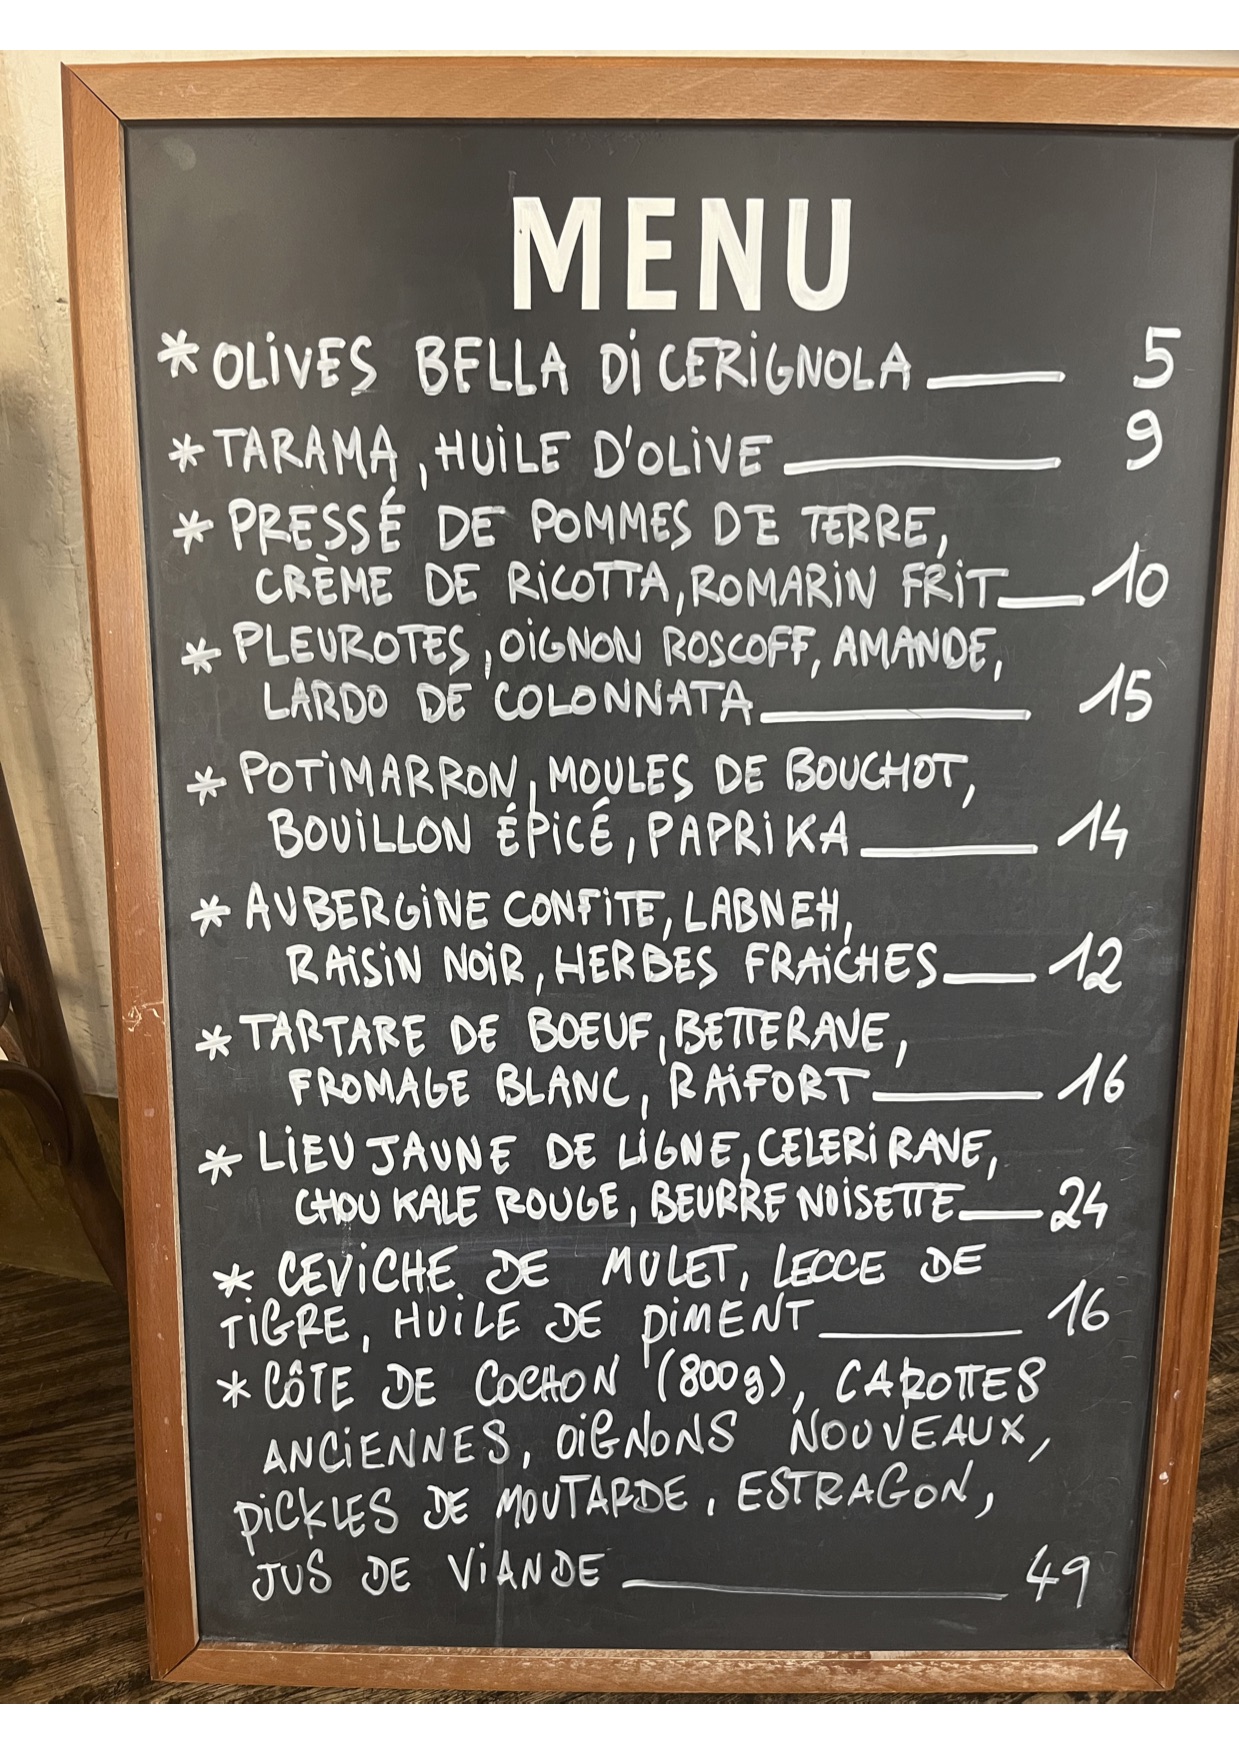 MENU
* OLIVES BELLA DI CERIGNOLA 5
* TARAMA, HUILE D'OLIVE 9
* PRESSÉ DE POMMES DE TERRE,
CRÈME DE RICOTTA, ROMARIN FRIT 10
* PLEUROTES, OIGNON ROSCOFF, AMANDE,
LARDO DE COLONNATA 15
* POTIMARRON, MOULES DE BOUCHOT,
BOUILLON ÉPICÉ, PAPRIKA 14
* AUBERGINE CONFITE, LABNEH,
RAISIN NOIR, HERBES FRAICHES 12
* TARTARE DE BOEUF, BETTERAVE,
FROMAGE BLANC, RAIFORT 16
* LIEU JAUNE DE LIGNE, CELERI RAVE,
CHOU KALE ROUGE, BEURRE NOISETTE 24
* CEVICHE DE MULET, LECCE DE
TIGRE, HUILE DE PIMENT 16
* CÔTE DE COCHON (800g), CAROTTES
ANCIENNES, OIGNONS NOUVEAUX,
PICKLES DE MOUTARDE, ESTRAGON,
JUS DE VIANDE 49